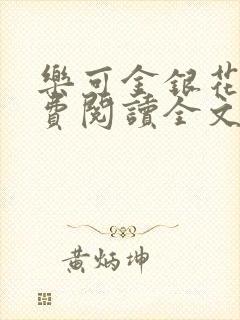 樂可金銀花
費閱讀全文
黃炳坤